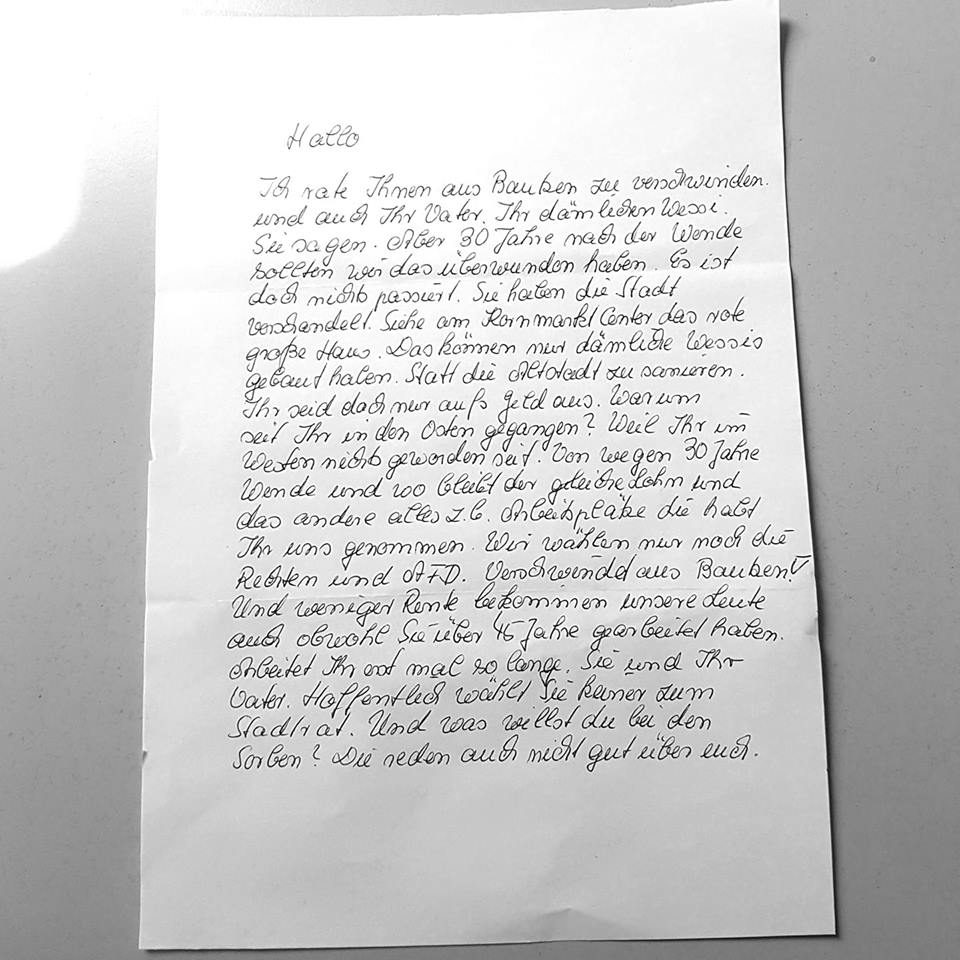 Hallo
Ich rate Ihnen aus Bautzen zu verschwinden.
und auch Ihr Vater. Ihr dämlichen Wessi.
Sie sagen. Aber 30 Jahre nach der Wende
sollten wir das überwunden haben. Es ist
doch nichts passiert. Sie haben die Stadt
verschandelt. Siehe am Kornmarkt Center das rote
große Haus. Das können nur dämliche Wessis
gebaut haben. Statt die Altstadt zu sanieren.
Ihr seid doch nur aufs Geld aus. Warum
seit Ihr in den Osten gegangen? Weil Ihr im
Westen nichts geworden seit. Von wegen 30 Jahre
Wende und wo bleibt der gleiche Lohn und
das andere alles z.b. Arbeitspläze die habt
Ihr uns genommen. Wir wählen nur noch die
Rechten und AFD. Verschwindet aus Bautzen!
Und weniger Rente bekommen unsere Leute
auch obwohl Sie über 45 Jahre gearbeitet haben.
Arbeitet Ihr erst mal so lange. Sie und Ihr
Vater. Hoffentlich wählt Sie keiner zum
Stadtrat. Und was willst du bei den
Sorben? Die reden auch nicht gut über euch.